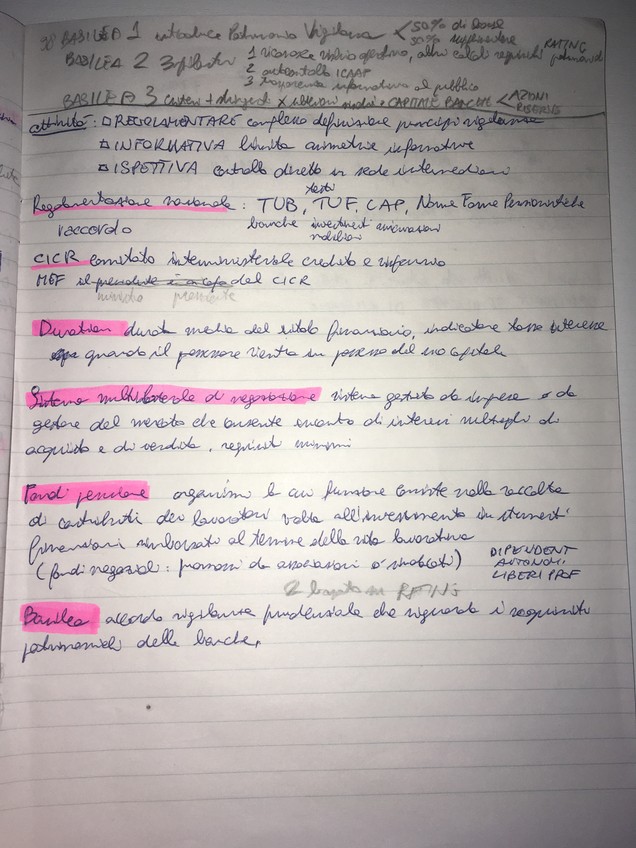 98 BASILEA 1 introduce Patrimonio Vigilanza < 50% di base
50% supplementare
BASILEA 2 3 pilastri 1 riconosce rischio operativo, altri calcoli requisiti patrimoniali RATING
2 autocontrollo ICAAP
3 trasparenza informativa al pubblico
BASILEA 3 criteri + stringenti x CAPITALE BANCHE < AZIONI
RISERVE
attività: REGOLAMENTARE complesso definizione principi vigilanza
INFORMATIVA limita asimmetrie informative
ISPETTIVA controllo diretto in sede intermediari
testi
Regolamentazione nazionale: TUB, TUF, CAP, Norme Forme Pensionistiche
raccordo banche investment assicurazioni
mobiliari
CICR comitato interministeriale credito e risparmio
MEF il presidente è a capo del CICR
ministro presiente
Duration durata media del titolo finanziario, indicatore tasso interesse
quando il possessore rientra in possesso del suo capitale
Sistema multilaterale di negoziazione sistema gestito da imprese o da
gestore del mercato che consente incontro di interessi multipli di
acquisto e di vendita, requisiti minimi
Fondi pensione organismi la cui funzione consiste nella raccolta
di contributi dei lavoratori volta all'investimento in strumenti
finanziari rimborsato al termine della vita lavorativa
(fondi negoziali: promossi da associazioni o sindacati) DIPENDENT
AUTONOMI,
LIBERI PROF
2 basata su RATING
Basilea accordo vigilanza prudenziale che riguarda i requisiti
patrimoniali delle banche,